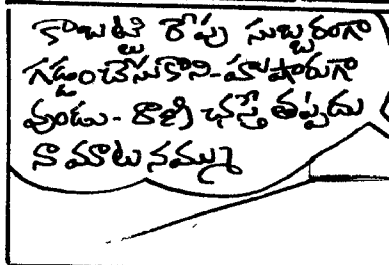 కాబట్టి రేపు సుబ్బరంగా
గడ్డంచేసుకొని-హుషారుగా
వుండు- రాణీ ఛస్తే తప్పదు
నా మాట నమ్ము